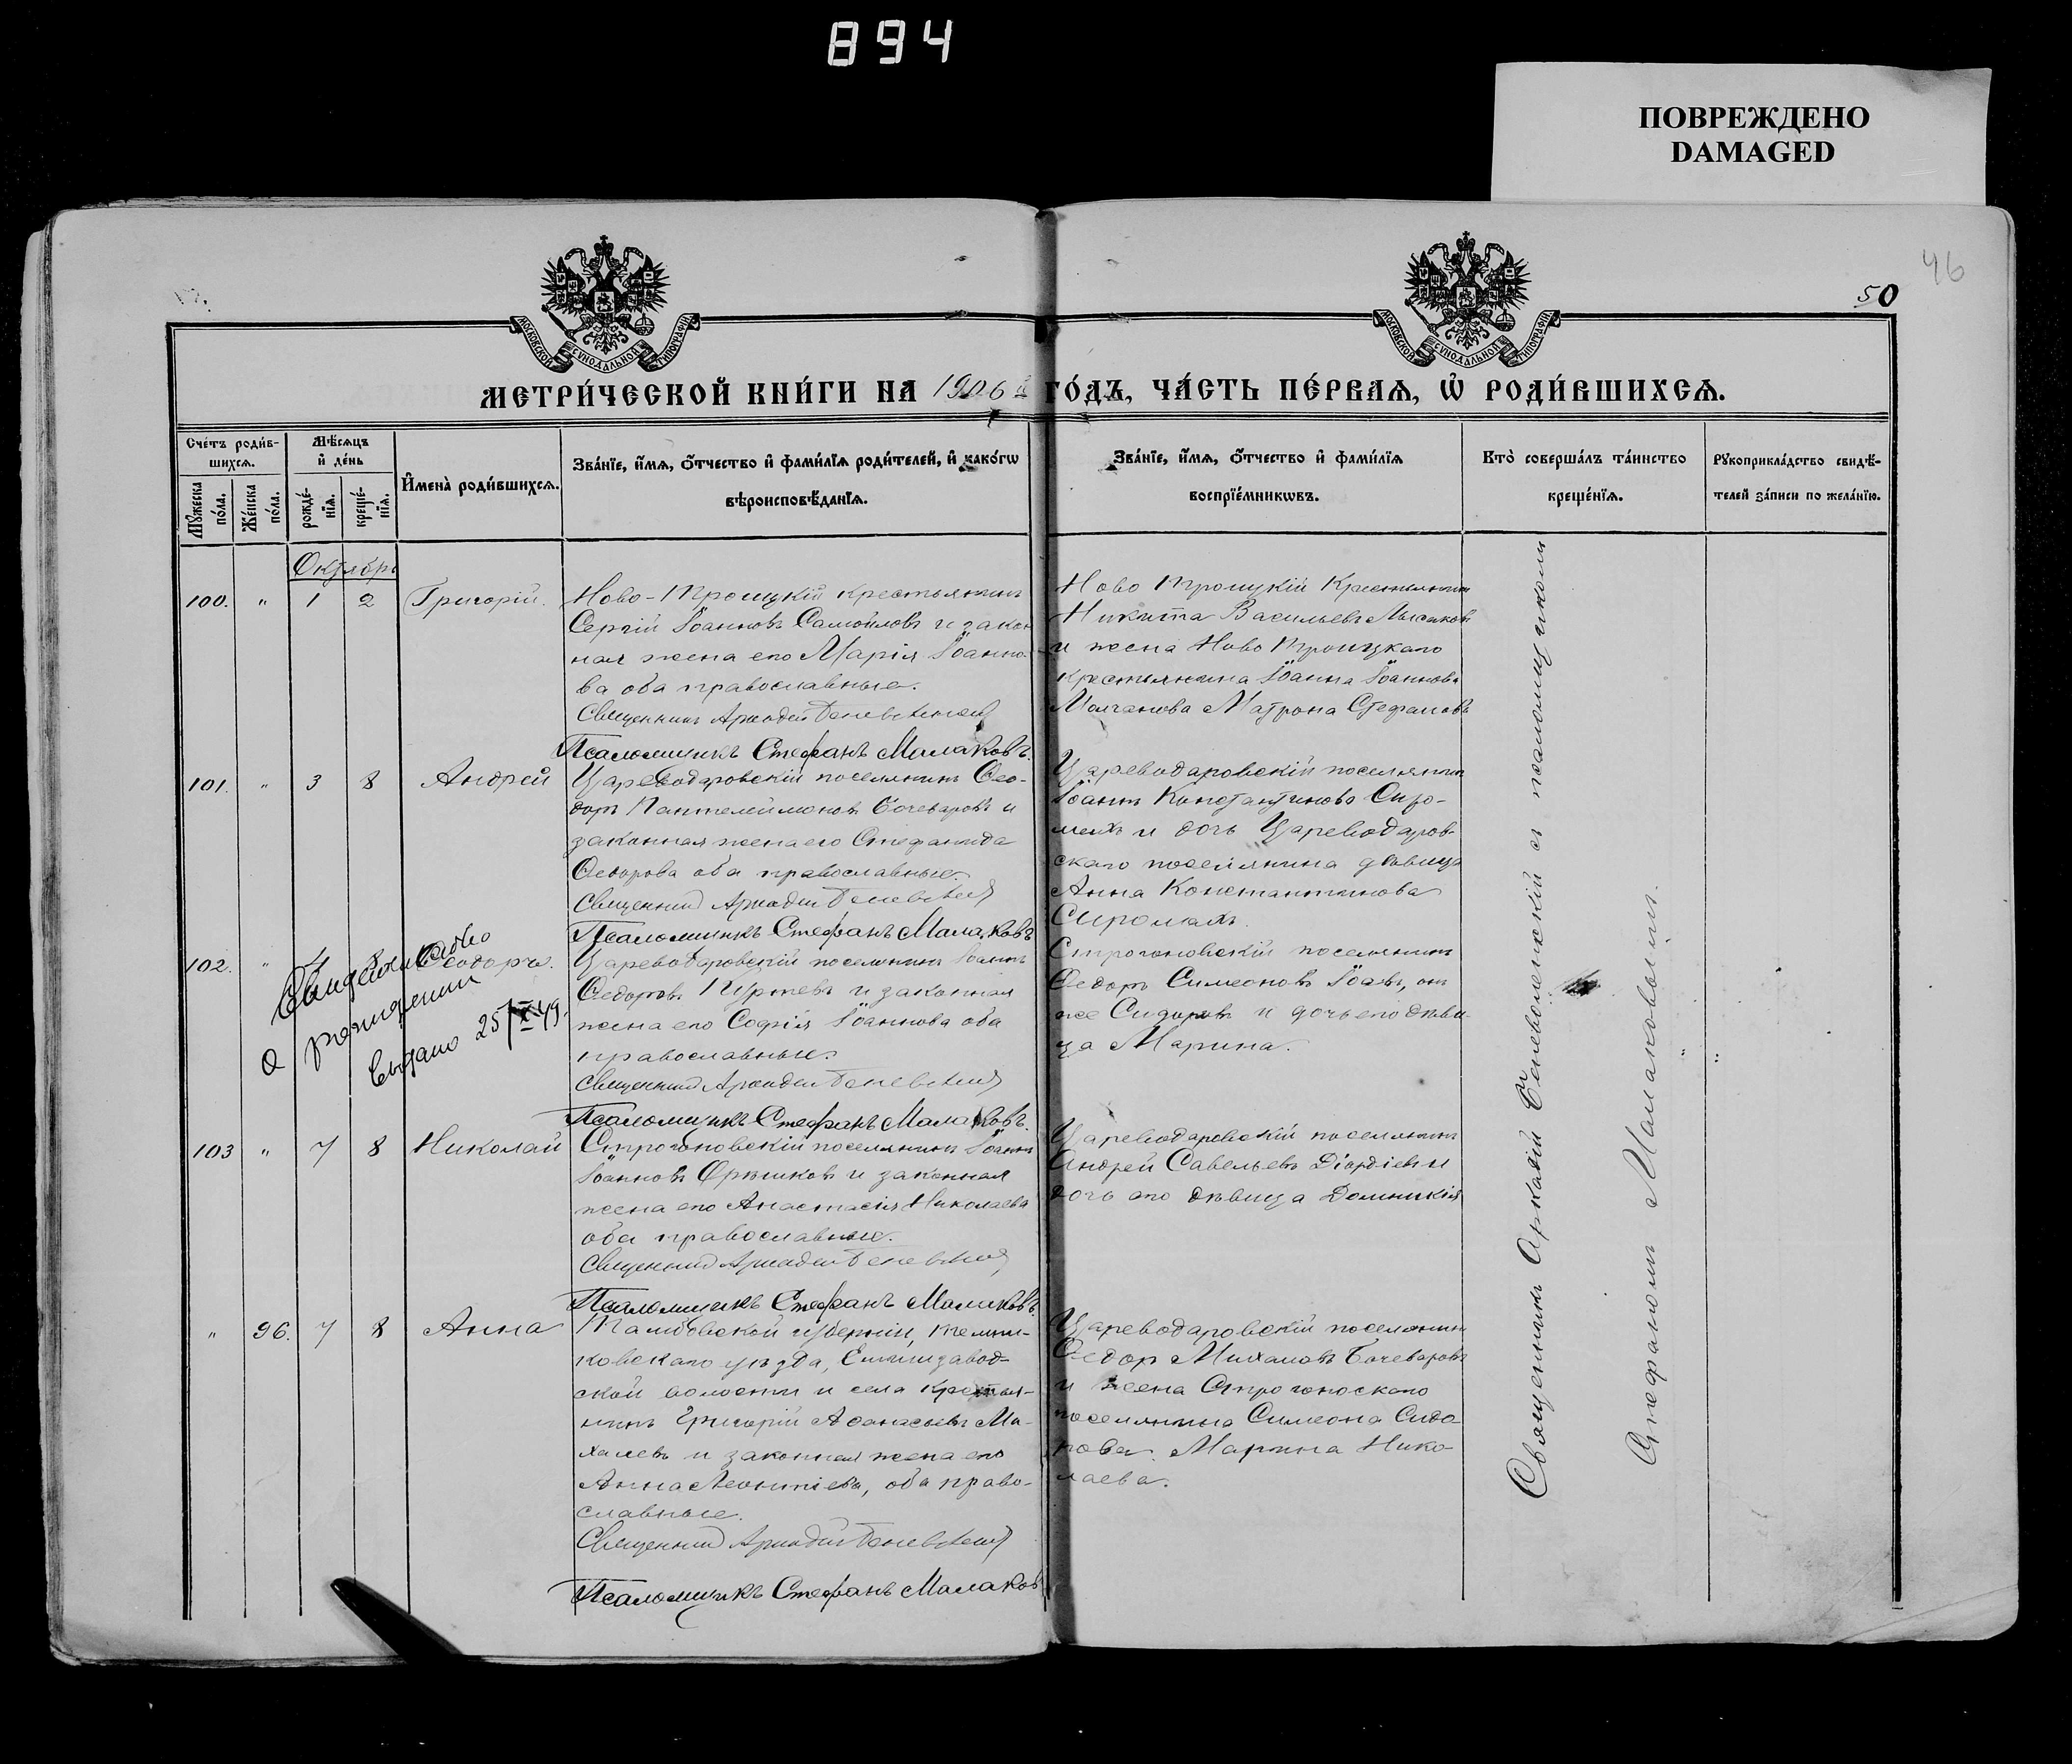 894
ПОВРЕЖДЕНО
DAMAGED
46
50
МОСКОВСКОЙ СУНОДАЛЬНОЙ ТИПОГРАФІИ
МОСКОВСКОЙ СУНОДАЛЬНОЙ ТИПОГРАФІИ
МЕТРИ́ЧЕСКОЙ КНИ́ГИ НА 1906 й ГО́ДЪ, ЧА́СТЬ ПЕ́РВАѦ, Ѡ҆ РОДИ́ВШИХСѦ.
Сче́тъ роди́в-
шихсѧ.
Мꙋ́жеска
по́ла.
Же́нска
по́ла.
Мѣ́сѧцъ
и҆ де́нь
рожде́-
нїѧ.
креще́-
нїѧ.
И҆мена̀ роди́вшихсѧ.
Зва́нїе, и҆́мѧ, ѻ҆́тчество и҆ фами́лїѧ роди́телей, и҆ како́гѡ
вѣроисповѣ́данїѧ.
Зва́нїе, и҆́мѧ, ѻ҆́тчество и҆ фами́лїѧ
воспрїе́мникѡвъ.
Кто̀ соверша́лъ та́инство
креще́нїѧ.
Рꙋкоприкла́дство свидѣ́-
телей за́писи по жела́нїю.
Октябрь
100. " 1 2 Григорій.
Ново-Троицкій крестьянинъ
Сергій Іоанновъ Самойловъ и закон
ная жена его Марія Іоанно-
ва оба православные.
Священникъ Аркадій Беневоленскій
Псаломщикъ Стефанъ Малаховъ.
Ново Троицкій Крестьянинъ
Никита Васильевъ
и жена Ново Троицкаго
крестьянина Іоанна Іоаннова
Молчанова Матрона Стефанова
101. " 3 8 Андрей
Цареводаровскій поселянинъ Ѳео-
доръ Пантелеймоновъ Бочеваровъ и
законная жена его Стефанида
Ѳеодорова оба православные.
Священникъ Аркадій Беневоленскій
Псаломщикъ Стефанъ Малаховъ
Цареводаровскій поселянинъ
Іоаннъ Константиновъ Сиро-
махъ и дочь Цареводаров-
скаго поселянина дѣвица
Анна Константинова
Сиромахъ.
102. " 4 8 Ѳеодоръ.
Свидетельство
о рождении
выдано 25/IX 49.
Цареводаровскій поселянинъ Іоаннъ
Ѳедоровъ и законная
жена его Софія Іоаннова оба
православные.
Священникъ Аркадій Беневоленскій
Псаломщикъ Стефанъ Малаховъ.
Строгоновскій поселянинъ
Ѳедоръ Симеоновъ онъ
же Сидоровъ и дочь его дѣви-
ца Марина.
103 " 7 8 Николай
Строгоновскій поселянинъ Іоаннъ
Іоанновъ Орѣшковъ и законная
жена его Анастасія Николаева
оба православные.
Священникъ Аркадій Беневоленскій
Псаломщикъ Стефанъ Малаховъ.
Цареводаровскій поселянинъ
Андрей Савельевъ Діордіевъ и
дочь его дѣвица Домникія
" 96. 7 8 Анна
Тамбовской губерніи, Темни-
ковскаго уѣзда,
ской волости и села крестья-
нинъ Григорій Аѳанасьевъ Ми-
халевъ и законная жена его
Анна Леонтіева, оба право-
славные.
Священникъ Аркадій Беневоленскій
Псаломщикъ Стефанъ Малаховъ
Цареводаровскій поселянинъ
Ѳедоръ Михаиловъ Бочеваровъ
и жена Строгоноскаго
поселянина Симеона Сидо
рова Марина Нико-
лаева.
Священникъ Аркадій Беневоленскій съ псаломщикомъ
Стефаномъ Малаховымъ.